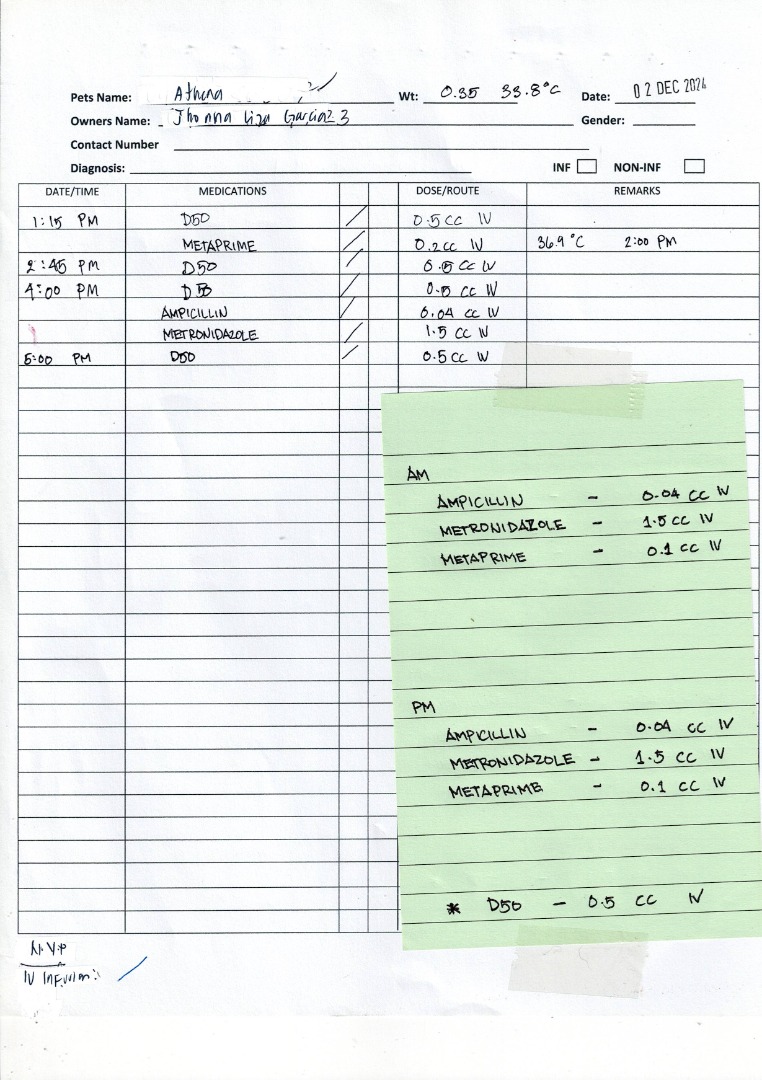 Pets Name: Athena Wt: 0.35 33.8°C Date: 02 DEC 2024
Owners Name: Jhonna Liza Garcia Gender:
Contact Number
Diagnosis: INF NON-INF
DATE/TIME MEDICATIONS DOSE/ROUTE REMARKS
1:15 PM D50 0.5 cc IV
METAPRIME 0.2 cc IV 36.9°C 2:00 PM
2:45 PM D50 0.5 cc IV
4:00 PM D50 0.5 cc IV
AMPICILLIN 0.04 cc IV
METRONIDAZOLE 1.5 cc IV
5:00 PM D50 0.5 cc IV
AM
AMPICILLIN - 0.04 cc IV
METRONIDAZOLE - 1.5 cc IV
METAPRIME - 0.1 cc IV
PM
AMPICILLIN - 0.04 cc IV
METRONIDAZOLE - 1.5 cc IV
METAPRIME - 0.1 cc IV
* D50 - 0.5 cc IV
IV